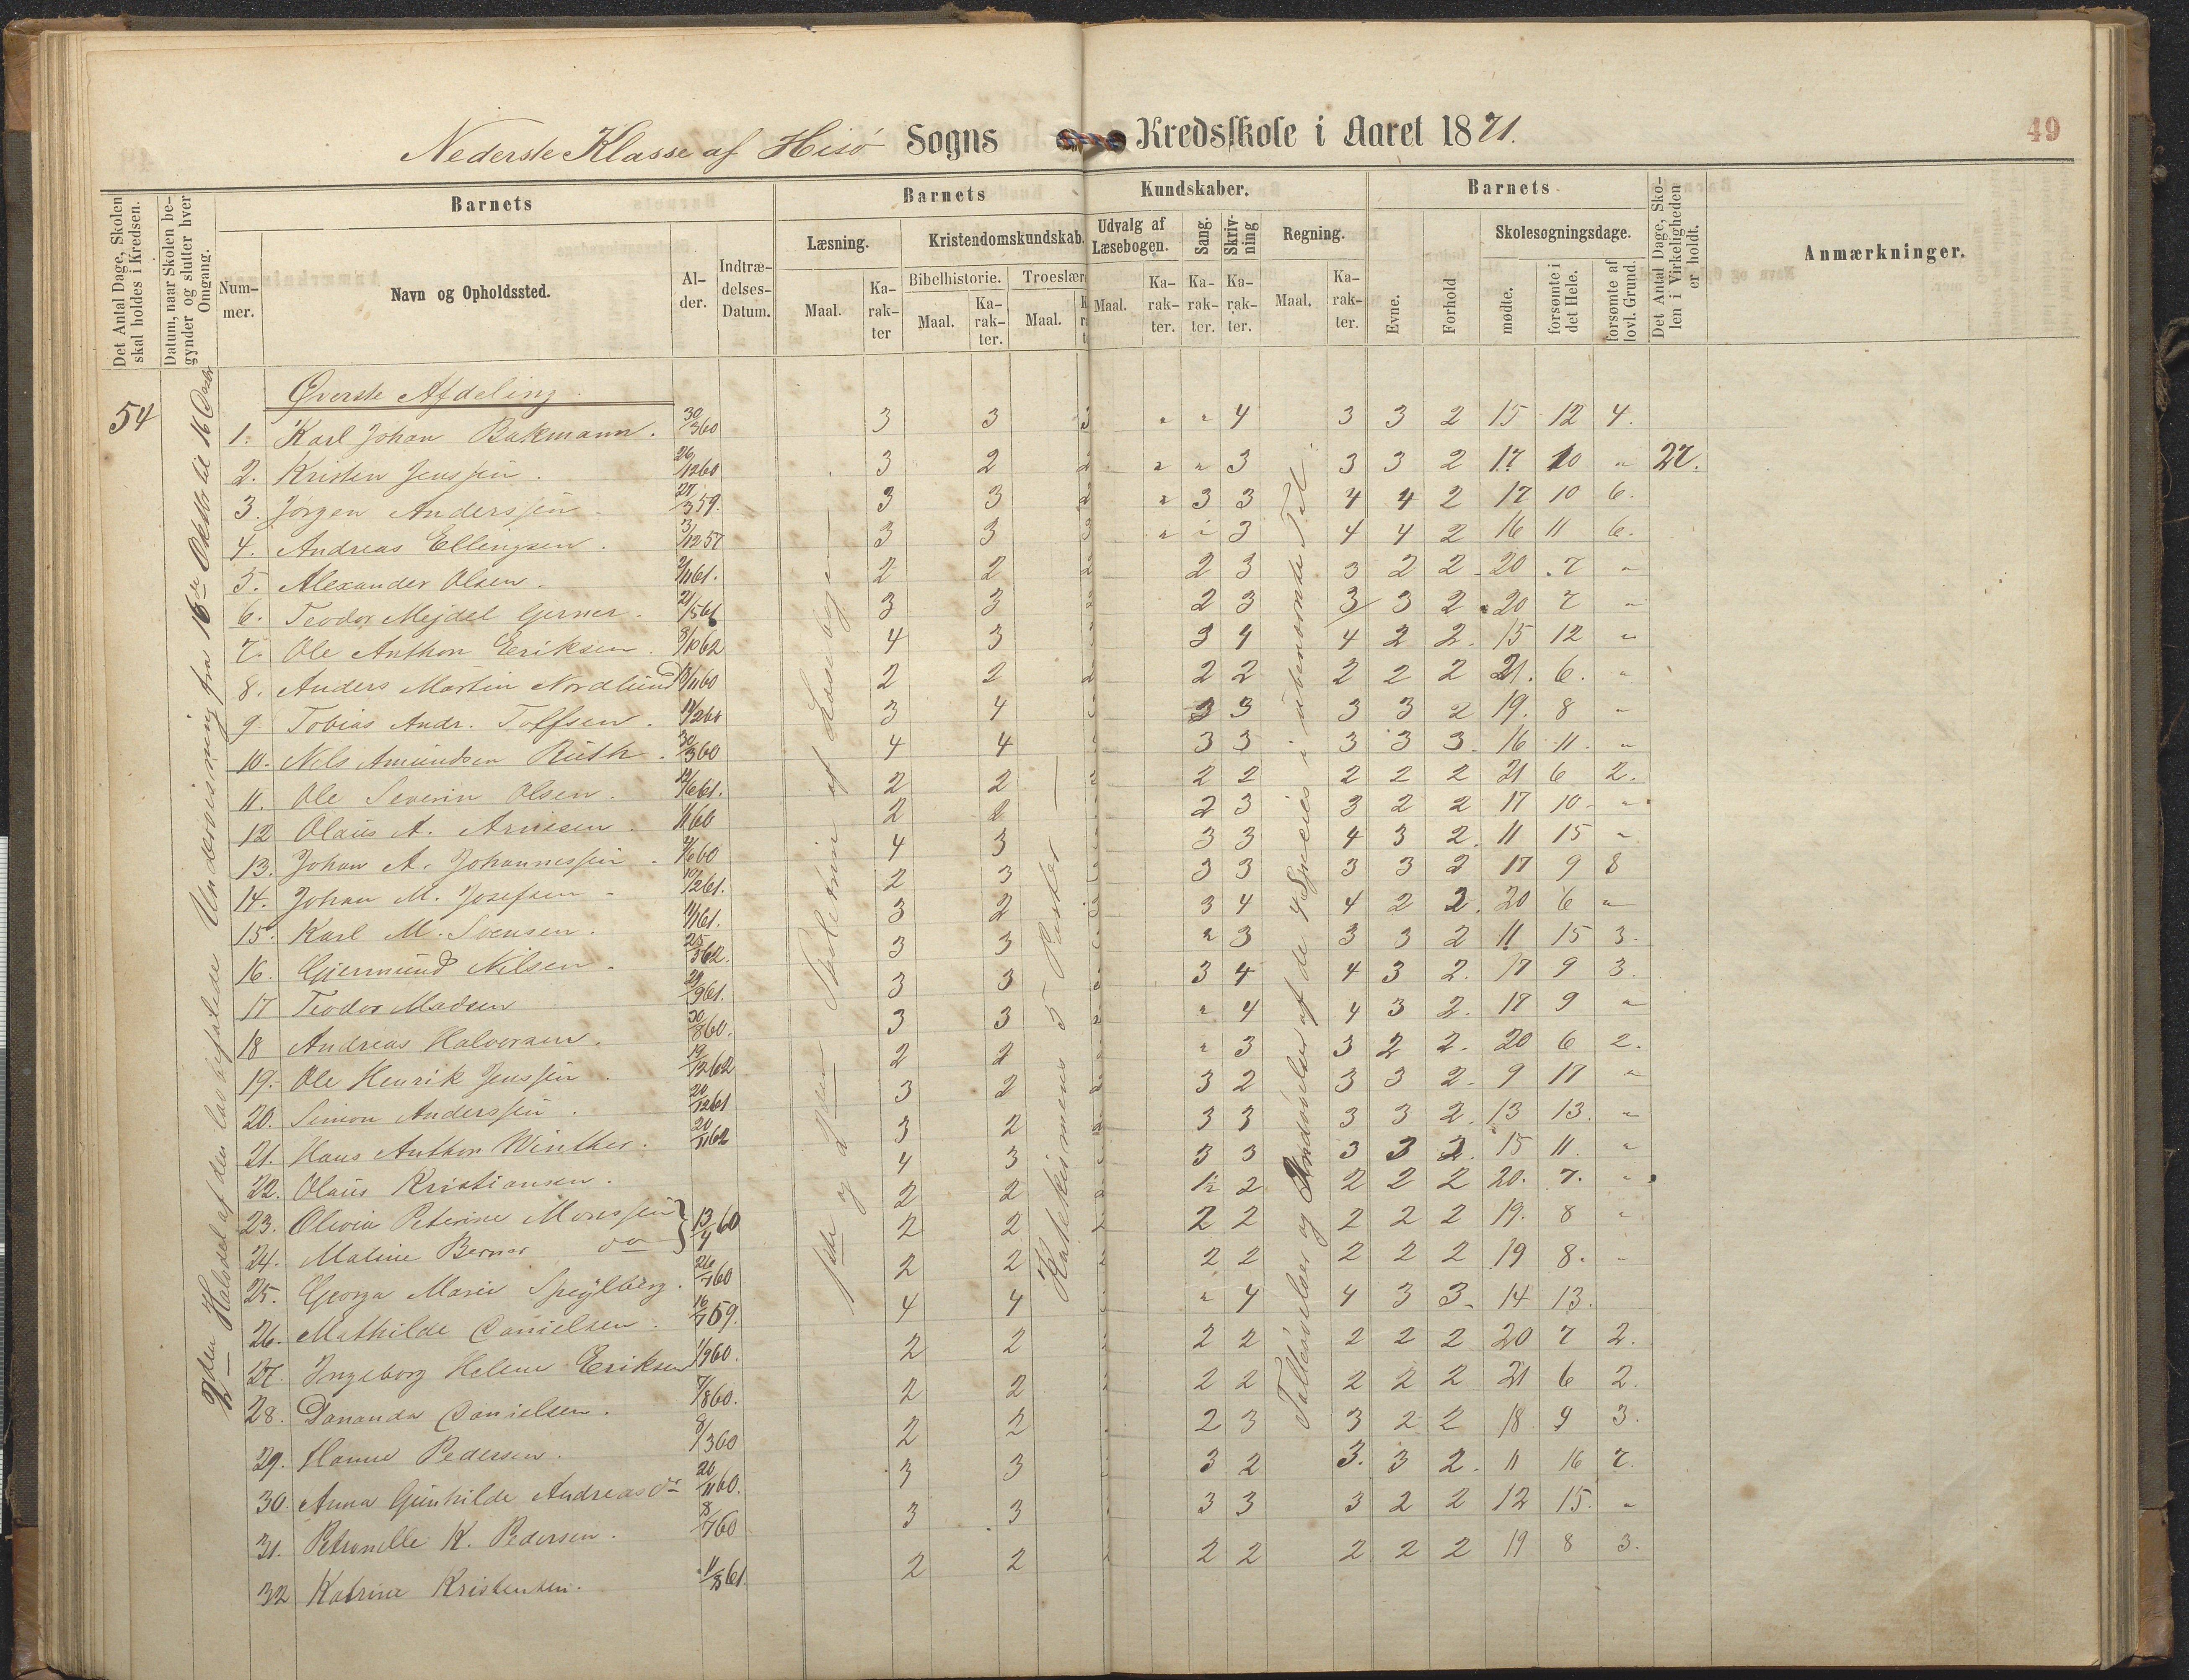 Nederste Klasse af Hisö Sogns Kredsskole i Aaret 1871.
49
Det Antal Dage, Skolen skal holdes i Kredsen.
Datum, naar Skolen begynder og slutter hver Omgang.
Barnets
Nummer.
Navn og Opholdssted.
Alder.
Indtrædelses-Datum.
Barnets Kundskaber.
Læsning.
Maal.
Karakter
Kristendomskundskab.
Bibelhistorie.
Maal.
Karakter.
Troeslær
Maal.
Udvalg af Læsebogen.
Maal.
Karakter.
Sang.
Karakter.
Skrivning
Karakter.
Regning.
Maal.
Karakter.
Barnets
Evne.
Forhold
Skolesøgningsdage.
mødte.
forsømte i det Hele.
forsømte af lovl. Grund.
Det Antal Dage, Skolen i Virkeligheden er holdt.
Anmærkninger.
Øverste Afdeling.
54
27.
1. Karl Johan Bakmann. 30/3 60 3 3 3 " " 4 3 3 2 15 12 4.
2. Kristen Jenssen. 26/12 60 3 2 2 " " 3 3 3 2 17 10 "
3. Jörgen Anderssen. 27/3 59. 3 3 2 " 3 3 4 4 2 17 10 6.
4. Andreas Ellingsen. 3/12 57 3 3 3 " " 3 4 4 2 16 11 6.
5. Alexander Olsen. 2/11 61. 2 2 2 2 3 3 2 2 20 7 "
6. Teodor Mejdel Gerner. 21/5 61 3 3 2 2 3 3 3 2 20 7 "
7. Ole Anthon Eriksen. 8/10 62 4 3 3 4 4 2 2. 15 12 "
8. Anders Martin Nordlund 2 2 2 2 2 2 2 2 21. 6. "
9. Tobias Andr. Toffsen. 3 4 3 3 3 3 2 19. 8 "
10. Nels Amundsen Ruth. 30/3 60 4 4 3 3 3 3 3. 16 11. "
11. Ole Severin Olsen. 2 2 2 2 2 2 2 2 21 6 2.
12 Olaus A. Arnesen. 2 2 3 3 2 2 17 10 "
13. Johan A. Johannessen. 4 3 3 3 4 3 2. 11 15 "
14. Johan M. Josefsen 10/2 61. 2 3 3 3 3 3 2 17 9 8
15. Karl M. Svensen. 3 2 3 3 4 4 2 2. 20 6 "
16. Gjermund Nilsen. 25/3 62. 3 3 " 3 3 3 2 11 15 3.
17 Teodor Madsen 29/9 61. 3 3 3 3 4 4 3 2. 17 9 3.
18 Andreas Halvorsen. 30/8 60. 3 3 2 " 4 4 3 2. 17 9 "
19. Ole Henrik Jenssen. 19/12 62 2 2 " 3 3 2 2. 20 6 2.
20. Simon Anderssen. 20/12 61 3 2 2 3 2 3 3 2. 9 17 "
21. Hans Anthon Winther. 20/11 62 3 2 2 3 3 3 3 2. 13 13. "
22. Olaus Kristiansen. 4 3 3 3 3 3 2. 15 11. "
23. Olivia Peterine Monssen } 13/4 60 2 2 2 2 2 2 2 20. 7. "
24. Maline Berner do 2 2 2 2 2 2 2 2 19. 8 "
25. Georga Marie Spejlberg. 26/7 60 2 2 2 2 2 2 2 2 19 8. "
26. Mathilde Danielsen. 16/7 59. 4 4 " 4 4 3 3. 14 13.
27. Ingeborg Helene Eriksen 1/9 60. 2 2 2 2 2 2 2 20 7 2.
28. Dananda Danielsen. 7/8 60. 2 2 2 2 2 2 2 21 6 2.
29. Hanne Pedersen. 9/3 60 2 2 2 3 3 2 2 18 9 3.
30. Anna Gunhilde Andreasdr 20/11 60. 3 3 3 2 3. 3 2. 11 16 7.
31. Petronelle K. Pedersen. 8/7 60 3 3 3 3 3 2 2 12 15. "
32 Katrine Kristensen. 11/8 61. 2 2 2 2 2 2 2 2 19 8 3.
2den Halvdel af den lovbefalede Undervisning fra 16de Oktbr til 16 Decbr
1ste og 2den Skoletrin af Læsebogen
Katekismens 5 Parter
Talløvelser og Indøvelse af de 4 Species i ubenævnte Tal.